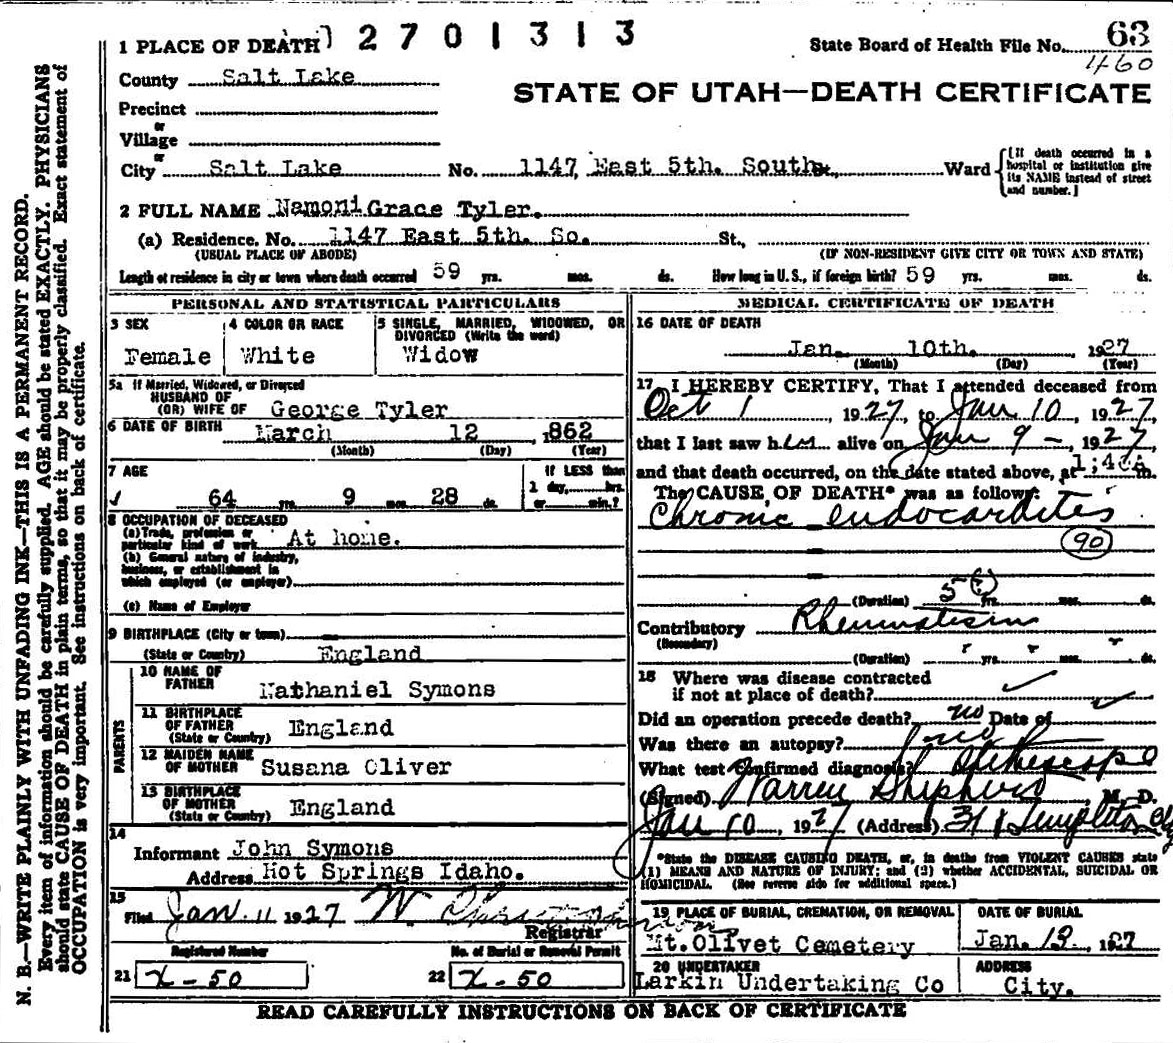 2701313
State Board of Health File No. 63
460
1 PLACE OF DEATH
County Salt Lake
STATE OF UTAH—DEATH CERTIFICATE
Precinct
or
Village
or
City Salt Lake No. 1147 East 5th. South. Ward
[If death occurred in a hospital or institution give its NAME instead of street and number.]
2 FULL NAME Namoni Grace Tyler.
(a) Residence. No. 1147 East 5th. So. St.,
(USUAL PLACE OF ABODE) (IF NON-RESIDENT GIVE CITY OR TOWN AND STATE)
Length of residence in city or town where death occurred 59 yrs. mos. ds. How long in U.S., if foreign birth? 59 yrs. mos. ds.
PERSONAL AND STATISTICAL PARTICULARS
3 SEX 4 COLOR OR RACE 5 SINGLE, MARRIED, WIDOWED, OR
DIVORCED (Write the word)
Female White Widow
5a If Married, Widowed, or Divorced
HUSBAND OF
(OR) WIFE OF George Tyler
6 DATE OF BIRTH March 12 1862
(Month) (Day) (Year)
7 AGE If LESS than
1 day, hrs.
64 yrs. 9 mos. 28 ds. or min.?
8 OCCUPATION OF DECEASED
(a) Trade, profession or
particular kind of work At home.
(b) General nature of industry,
business, or establishment in
which employed (or employer)
(c) Name of Employer
9 BIRTHPLACE (City or town)
(State or Country) England
PARENTS
10 NAME OF
FATHER Nathaniel Symons
11 BIRTHPLACE
OF FATHER
(State or Country) England
12 MAIDEN NAME
OF MOTHER Susana Oliver
13 BIRTHPLACE
OF MOTHER
(State or Country) England
14
Informant John Symons
Address Hot Springs Idaho.
15
Filed Jan. 11 1927 W
Registrar
Registered Number No. of Burial or Removal Permit
21 X-50 22 X-50
MEDICAL CERTIFICATE OF DEATH
16 DATE OF DEATH
Jan. 10th. 1927
(Month) (Day) (Year)
17 I HEREBY CERTIFY, That I attended deceased from
Oct 1 1927, to Jan 10, 1927,
that I last saw h alive on Jan 9 - 1927
and that death occurred, on the date stated above, at m.
The CAUSE OF DEATH* was as follows:
Chronic endocarditis
90
(Duration) 5 yrs. mos. ds.
Contributory Rheumatism
(Secondary)
(Duration) yrs. mos. ds.
18 Where was disease contracted
if not at place of death?
Did an operation precede death? no Date of
Was there an autopsy? no
What test confirmed diagnosis? Stethescope
(Signed) Warren Shepherd, M. D.
Jan 10, 1927 (Address) Templeton
*State the DISEASE CAUSING DEATH, or, in deaths from VIOLENT CAUSES state
(1) MEANS AND NATURE OF INJURY; and (2) whether ACCIDENTAL, SUICIDAL OR
HOMICIDAL. (See reverse side for additional space.)
19 PLACE OF BURIAL, CREMATION, OR REMOVAL DATE OF BURIAL
Mt. Olivet Cemetery Jan. 13. 1927
20 UNDERTAKER ADDRESS
Larkin Undertaking Co City.
READ CAREFULLY INSTRUCTIONS ON BACK OF CERTIFICATE
N. B.—WRITE PLAINLY WITH UNFADING INK—THIS IS A PERMANENT RECORD.
Every item of information should be carefully supplied. AGE should be stated EXACTLY. PHYSICIANS
should state CAUSE OF DEATH in plain terms, so that it may be properly classified. Exact statement of
OCCUPATION is very important. See instructions on back of certificate.